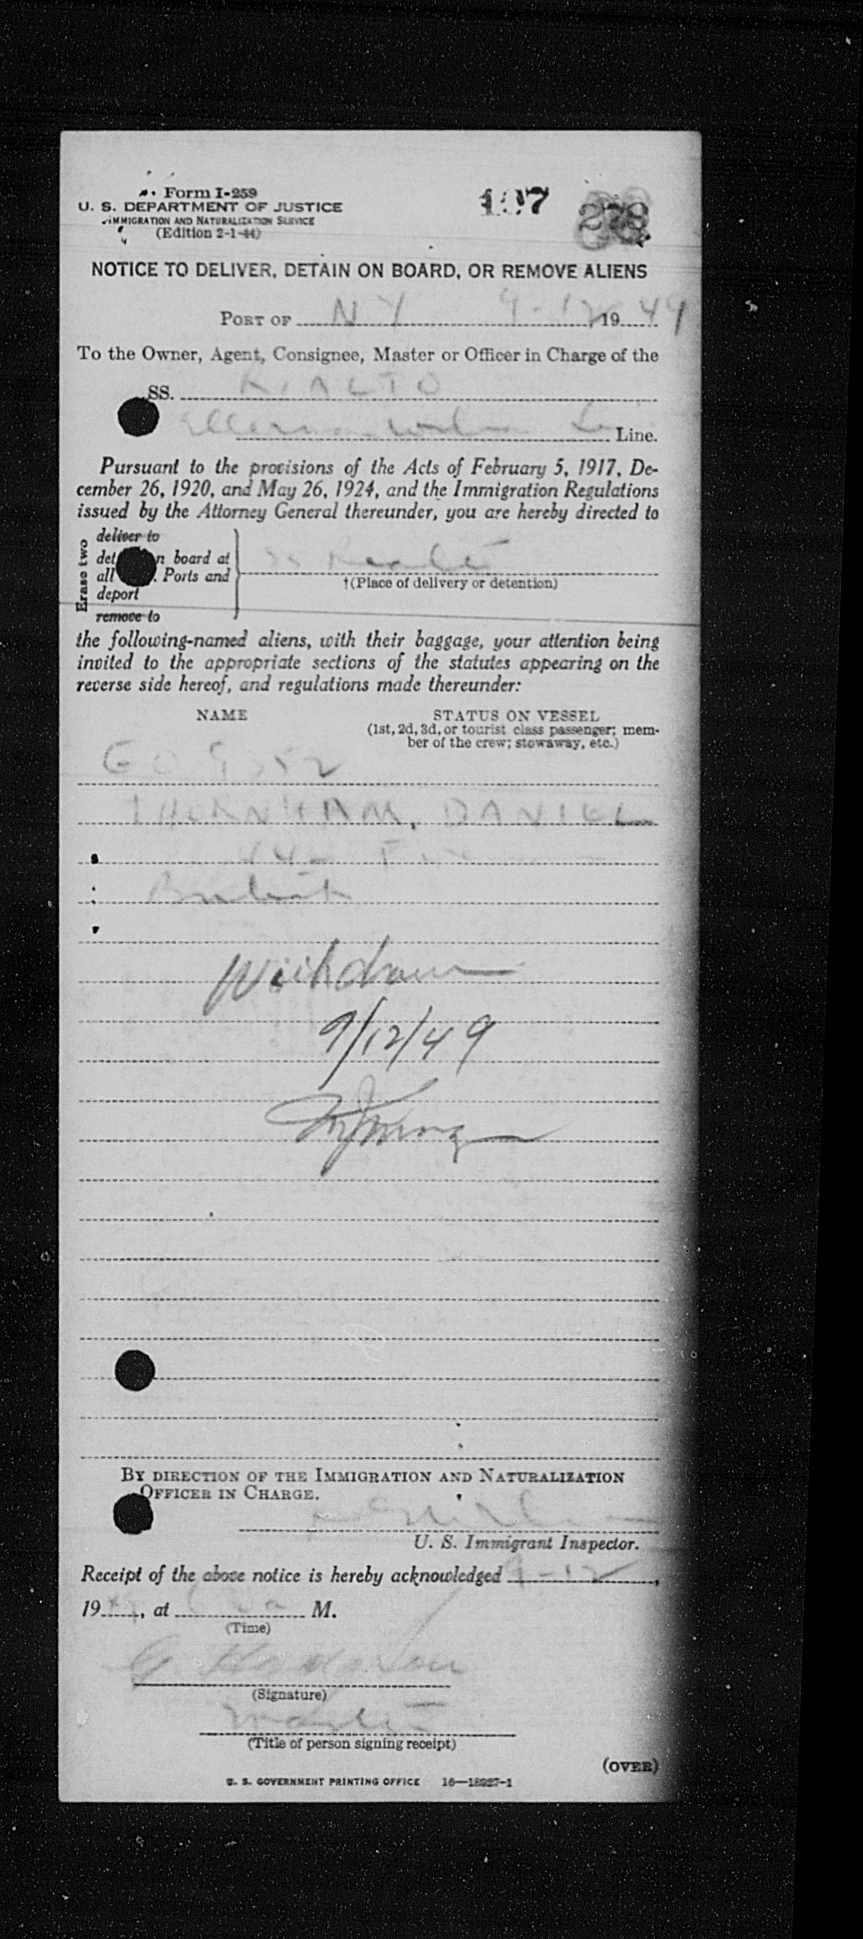 Form I-259
U. S. DEPARTMENT OF JUSTICE
IMMIGRATION AND NATURALIZATION SERVICE
(Edition 2-1-44)
107 278
NOTICE TO DELIVER, DETAIN ON BOARD, OR REMOVE ALIENS
PORT OF NY 9-12 1949
To the Owner, Agent, Consignee, Master or Officer in Charge of the
SS. RIALTO
Ellerman Wilson Line.
Pursuant to the provisions of the Acts of February 5, 1917, De-
cember 26, 1920, and May 26, 1924, and the Immigration Regulations
issued by the Attorney General thereunder, you are hereby directed to
Erase two
deliver to
det n board at
all . Ports and
deport
remove to
ss Rialto
†(Place of delivery or detention)
the following-named aliens, with their baggage, your attention being
invited to the appropriate sections of the statutes appearing on the
reverse side hereof, and regulations made thereunder:
NAME STATUS ON VESSEL
(1st, 2d, 3d, or tourist class passenger; mem-
ber of the crew; stowaway, etc.)
THORNHAM, DANIEL
British
Withdrawn
9/12/49
BY DIRECTION OF THE IMMIGRATION AND NATURALIZATION
OFFICER IN CHARGE.
U. S. Immigrant Inspector.
Receipt of the above notice is hereby acknowledged 9-12,
19 , at M.
(Time)
G. Hodgson
(Signature)
Master
(Title of person signing receipt)
(OVER)
U. S. GOVERNMENT PRINTING OFFICE 16—18927-1